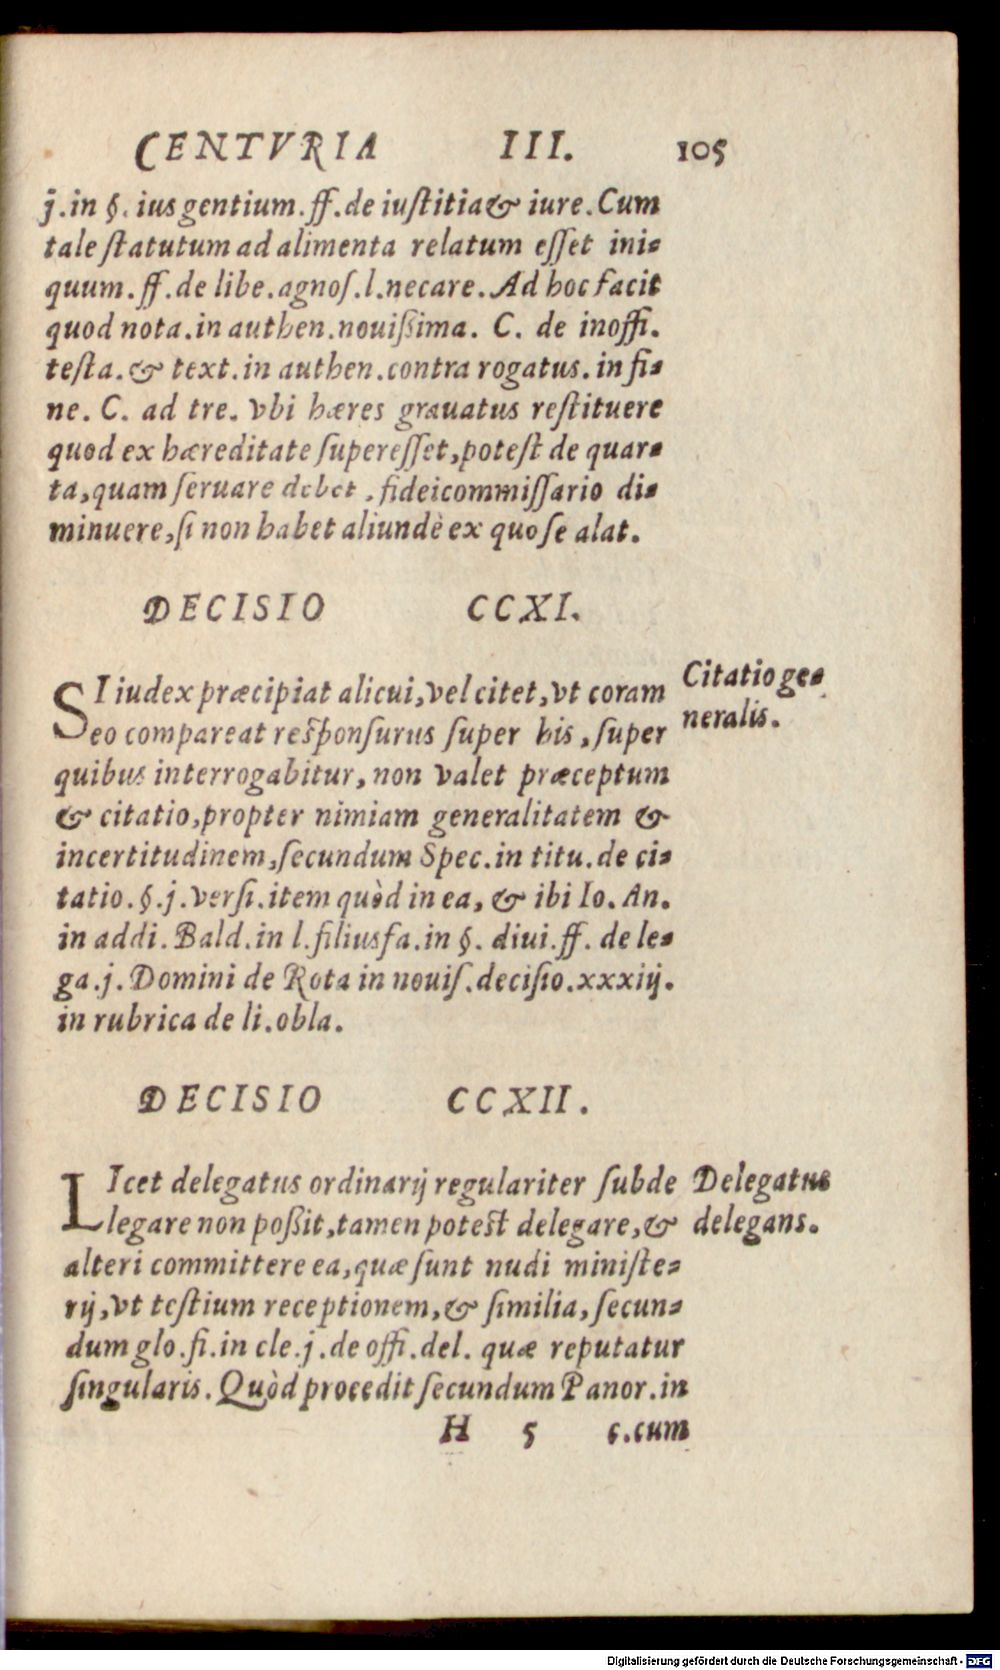 CENTVRIA III. 105
j̃.in §. ius gentium.ff.de iuſtitia & iure. Cum
tale ſtatutum ad alimenta relatum eſſet ini⸗
quum.ff.de libe.agnoſ.l.necare. Ad hoc facit
quod nota.in authen.nouiſsima. C. de inoffi.
teſta.& text.in authen.contra rogatus.in fi⸗
ne. C. ad tre. vbi hæres grauatus reſtituere
quod ex hæreditate ſupereſſet,poteſt de quar⸗
ta,quam ſeruare debet , fideicommiſſario di⸗
minuere,ſi non habet aliundè ex quo ſe alat.
DECISIO CCXI.
SI iudex præcipiat alicui,vel citet,vt coram
eo compareat reſponſurus ſuper his , ſuper
quibus interrogabitur, non valet præceptum
& citatio,propter nimiam generalitatem &
incertitudinem,ſecundum Spec.in titu.de ci⸗
tatio.§.j.verſi.item quòd in ea, & ibi Io. An.
in addi. Bald.in l.filiusfa.in §. diui.ff. de le⸗
ga.j. Domini de Rota in nouiſ.deciſio.xxxiij.
in rubrica de li.obla.
Citatio ge⸗
neralis.
DECISIO CCXII.
LIcet delegatus ordinarij regulariter ſubde
legare non poſsit,tamen poteſt delegare,&
alteri committere ea,quæ ſunt nudi miniſte⸗
rij,vt teſtium receptionem,& ſimilia, ſecun⸗
dum glo.fi.in cle.j.de offi.del. quæ reputatur
ſingularis. Quòd procedit ſecundum Panor.in
Delegatus
delegans.
H 5 c.cum
Digitalisierung gefördert durch die Deutsche Forschungsgemeinschaft - DFG